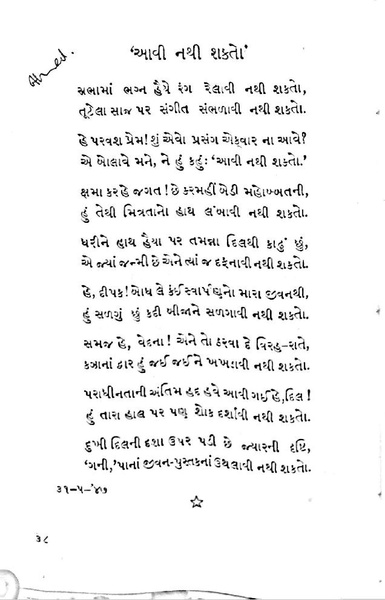 Ahmed.
‘આવી નથી શકતો’
સભામાં ભગ્ન હૈયે રંગ રેલાવી નથી શકતો,
તૂટેલા સાજ પર સંગીત સંભળાવી નથી શકતો.
હે પરવશ પ્રેમ! શું એવો પ્રસંગ એકવાર ના આવે?
એ બોલાવે મને, ને હું કહું: ‘આવી નથી શકતો.’
ક્ષમા કરહે જગત! છે કરમહીં બેડી મહોબ્બતની,
હું તેથી મિત્રતાનો હાથ લંબાવી નથી શકતો.
ધરીને હાથ હૈયા પર તમન્ના દિલથી કાઢું છું,
એ જ્યાં જન્મી છે એને ત્યાં જ દફનાવી નથી શકતો.
હે, દીપક! બોધ લે કંઈ સ્વાર્પણનો મારા જીવનથી,
હું સળગું છું કદી બીજાને સળગાવી નથી શકતો.
સમજ હે, વેદના! એને તો ઠરવા દે વિરહ-રાતે,
કઝાનાં દ્વાર હું જઈ જઈને ખખડાવી નથી શકતો.
પરાધીનતાની અંતિમ હદ હવે આવી ગઈ હે, દિલ!
હું તારા હાલ પર પણ શોક દર્શાવી નથી શકતો.
દુખી દિલની દશા ઉપર પડી છે જ્યારની દૃષ્ટિ,
‘ગની,’ પાનાં જીવન-પુસ્તકનાં ઉથલાવી નથી શકતો.
૩૧-૫-’૪૭
૩૮